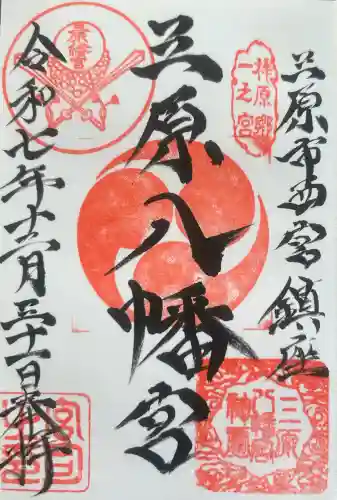 三原市西宮鎮座
柞原郷
一之宮
三原八幡宮
三原
八幡宮
神璽
令和七年十二月三十一日奉拝